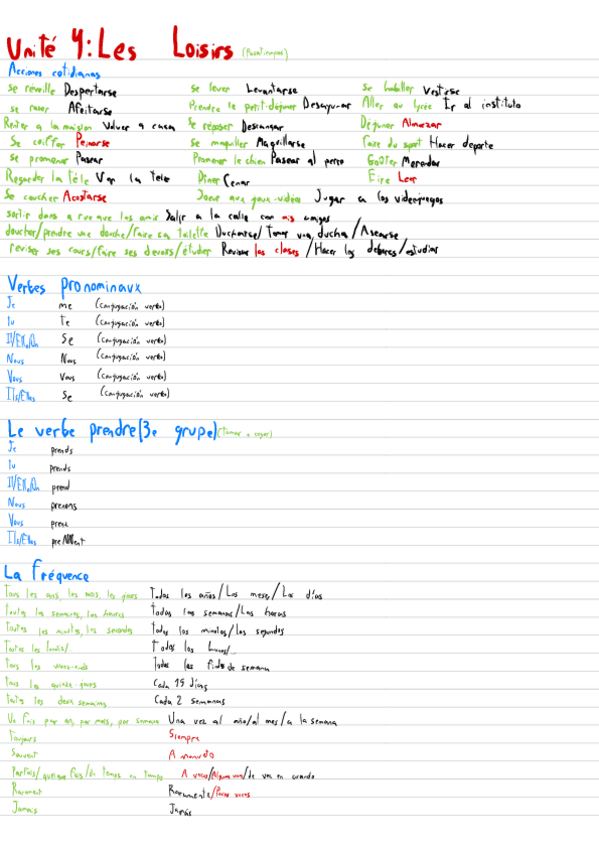 Unité 4: Les Loisirs (Pasatiempos)
Acciones cotidianas
se réveille Despertarse se lever Levantarse se habiller Vestirse
se raser Afeitarse Prendre le petit-déjeuner Desayunar Aller au lycée Ir al instituto
Renter a la maision Volver a casa Se reposer Descansar Déjuner Almorzar
Se coiffer Peinarse se maquiller Maquillarse Faire du sport Hacer deporte
se promener Pasear Promener le chien Pasear al perro Goûter Merendar
Regarder la télé Ver la tele Dîner Cenar Lire Leer
Se coucher Acostarse Joeur aux jeux-vidéos Jugar a los videojuegos
sortir dans a rue avec les amis Salir a la calle con mis amigos
doucher/prendre une douche/faire sa toilette Ducharse/Tomar una ducha/Asearse
reviser ses cours/faire ses devoirs/étudier Revisar las clases/Hacer los deberes/estudiar
Verbes pronominaux
Je me (conjugación verbo)
Tu te (conjugación verbo)
Il/Elle/On Se (conjugación verbo)
Nous Nous (conjugación verbo)
Vous vous (conjugación verbo)
Ils/Elles Se (conjugación verbo)
Le verbe prendre(3e grupe)(tomar o coger)
Je prends
Tu prends
Il/Elle/On prend
Nous prenons
Vous
Ils/Elles preNNent
La fréquence
Tous les ans, les mois, les jours Todos los años/Los meses/Los días
toutes les semaines, les heures Todas las semanas/Las horas
Toutes les minutes, les secondes Todos los minutos/los segundos
Toutes les lundis/... Todos los lunes/...
Tous les week-ends Todos los fines de semana
Tous les quinze jours Cada 15 días
toutes les deux semaines Cada 2 semanas
Un fois par an, par mois, par semaine Una vez al año/al mes/a la semana
Toujours Siempre
Souvent A menudo
Parfois/quelque fois/de temps en temps A veces/Alguna vez/de vez en cuando
Rarement Raramente/Pocas veces
Jamais Jamás